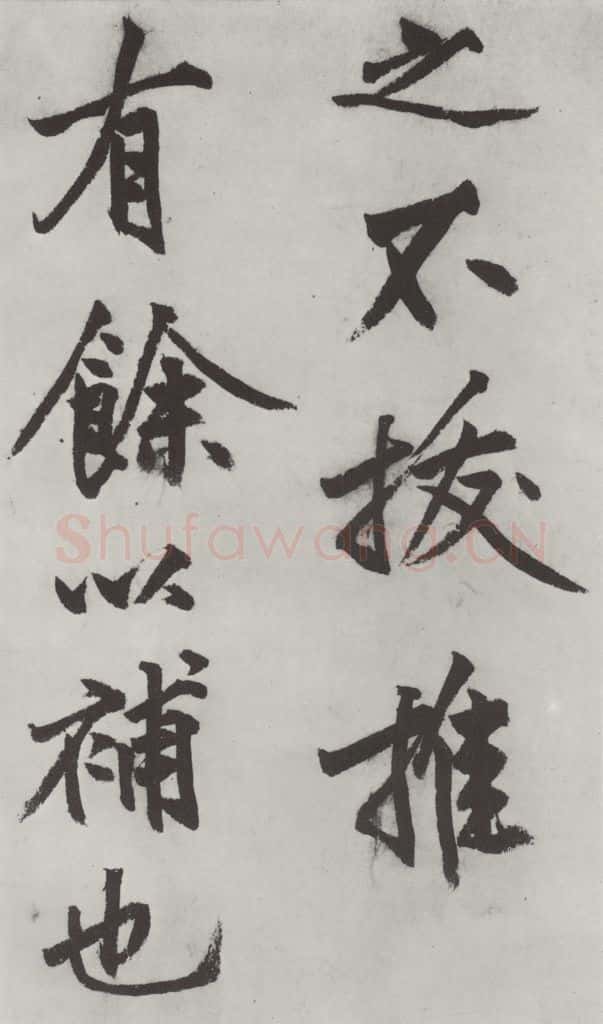 之不拔推
有餘以補也
Shufawang.CN